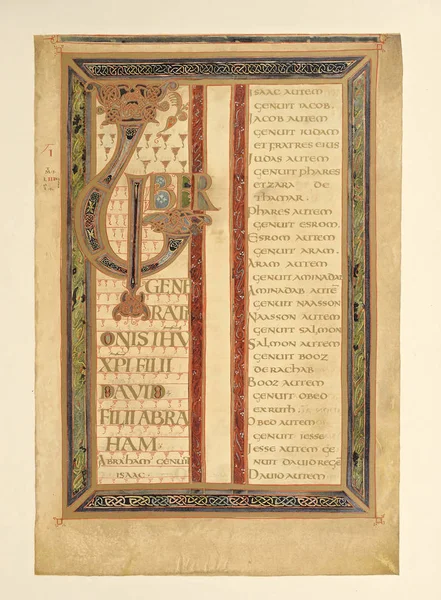 LIBER
GENE
RATI
ONIS IHU
XPI FILII
DAVID
FILII ABRA
HAM.
Abraham genuit
isaac.
Isaac autem
genuit iacob.
Iacob autem
genuit iudam
et fratres eius
Iudas autem
genuit phares
et zara de
thamar.
Phares autem
genuit esrom.
Esrom autem
genuit aram.
Aram autem
genuit aminadab
Aminadab autē
genuit naasson
Naasson autem
genuit salmon
Salmon autem
genuit booz
de rachab
Booz autem
genuit obed
ex ruth.
Obed autem
genuit iesse
Iesse autem ge
nuit david regē
David autem